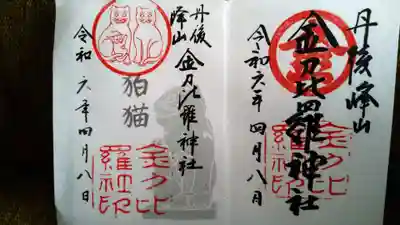 丹後峰山
金刀比羅神社
金刀比
羅社印
令和六年 四月八日
丹後
峰山
金刀比羅神社
狛猫
金刀比
羅社印
令和六年四月八日